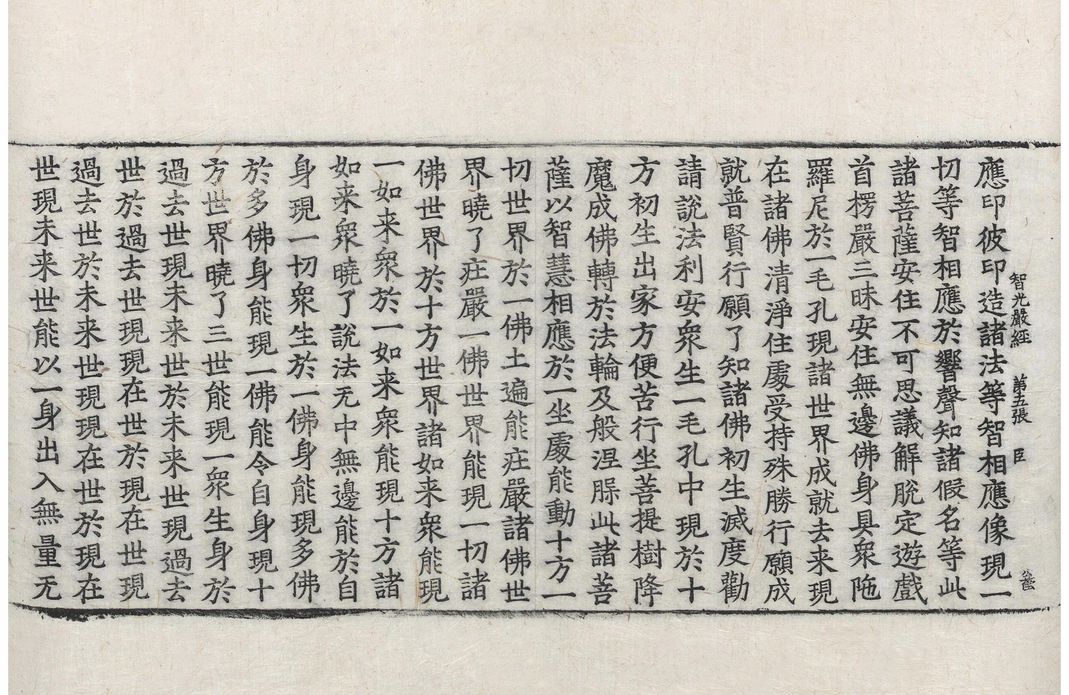 智光嚴經 第五張 臣
應印彼印造諸法等智相應像現一
切等智相應於響聲知諸假名等此
諸菩薩安住不可思議解脫定遊戲
首楞嚴三昧安住無邊佛身具衆陁
羅尼於一毛孔現諸世界成就去来現
在諸佛清淨住處受持殊勝行願成
就普賢行願了知諸佛初生滅度勸
請說法利安衆生一毛孔中現於十
方初生出家方便苦行坐菩提樹降
魔成佛轉於法輪及般涅槃此諸菩
薩以智慧相應於一坐處能動十方一
切世界於一佛土遍能庄嚴諸佛世
界曉了庄嚴一佛世界能現一切諸
佛世界於十方世界諸如来衆能現
一如来衆於一如来衆能現十方諸
如来衆曉了說法无中無邊能於自
身現一切衆生於一佛身能現多佛
於多佛身能現一佛能令自身現十
方世界曉了三世能現一衆生身於
過去世現未来世於未来世現過去
世於過去世現現在世於現在世現
過去世於未来世現現在世於現在
世現未来世能以一身出入無量无